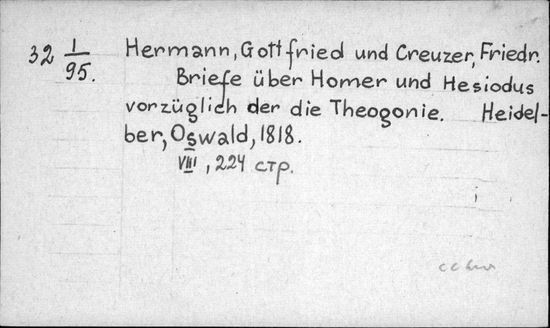 32 1/95. Hermann, Gottfried und Creuzer, Friedr.
Briefe über Homer und Hesiodus
vorzüglich der die Theogonie. Heidel-
ber, Oswald, 1818.
VIII, 224 стр.